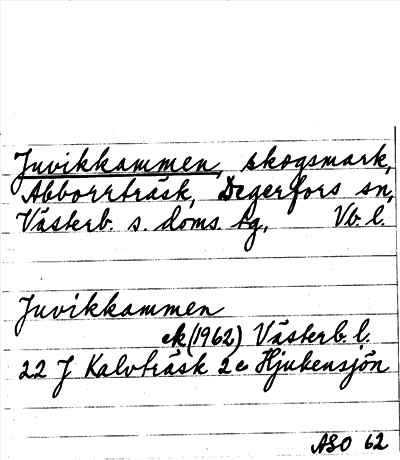 Juvikkammen, skogsmark,
Abborrträsk, Degerfors sn,
Västerb. s. doms. tg, Vb. l.
Juvikkammen
ek (1962) Västerb. l.
22 J Kalvträsk 2c Hjukensjön
ASO 62